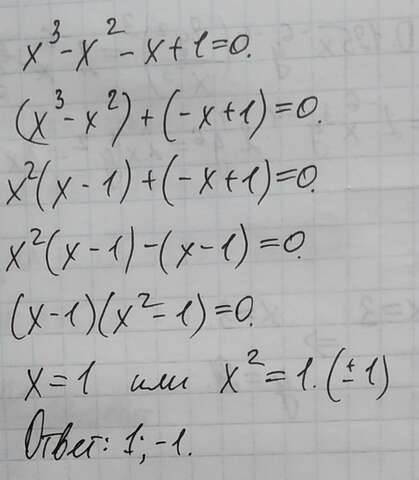 x³-x²-x+1=0.
(x³-x²)+(-x+1)=0.
x²(x-1)+(-x+1)=0.
x²(x-1)-(x-1)=0.
(x-1)(x²-1)=0.
x=1 или x²=1.(±1)
Ответ: 1; -1.